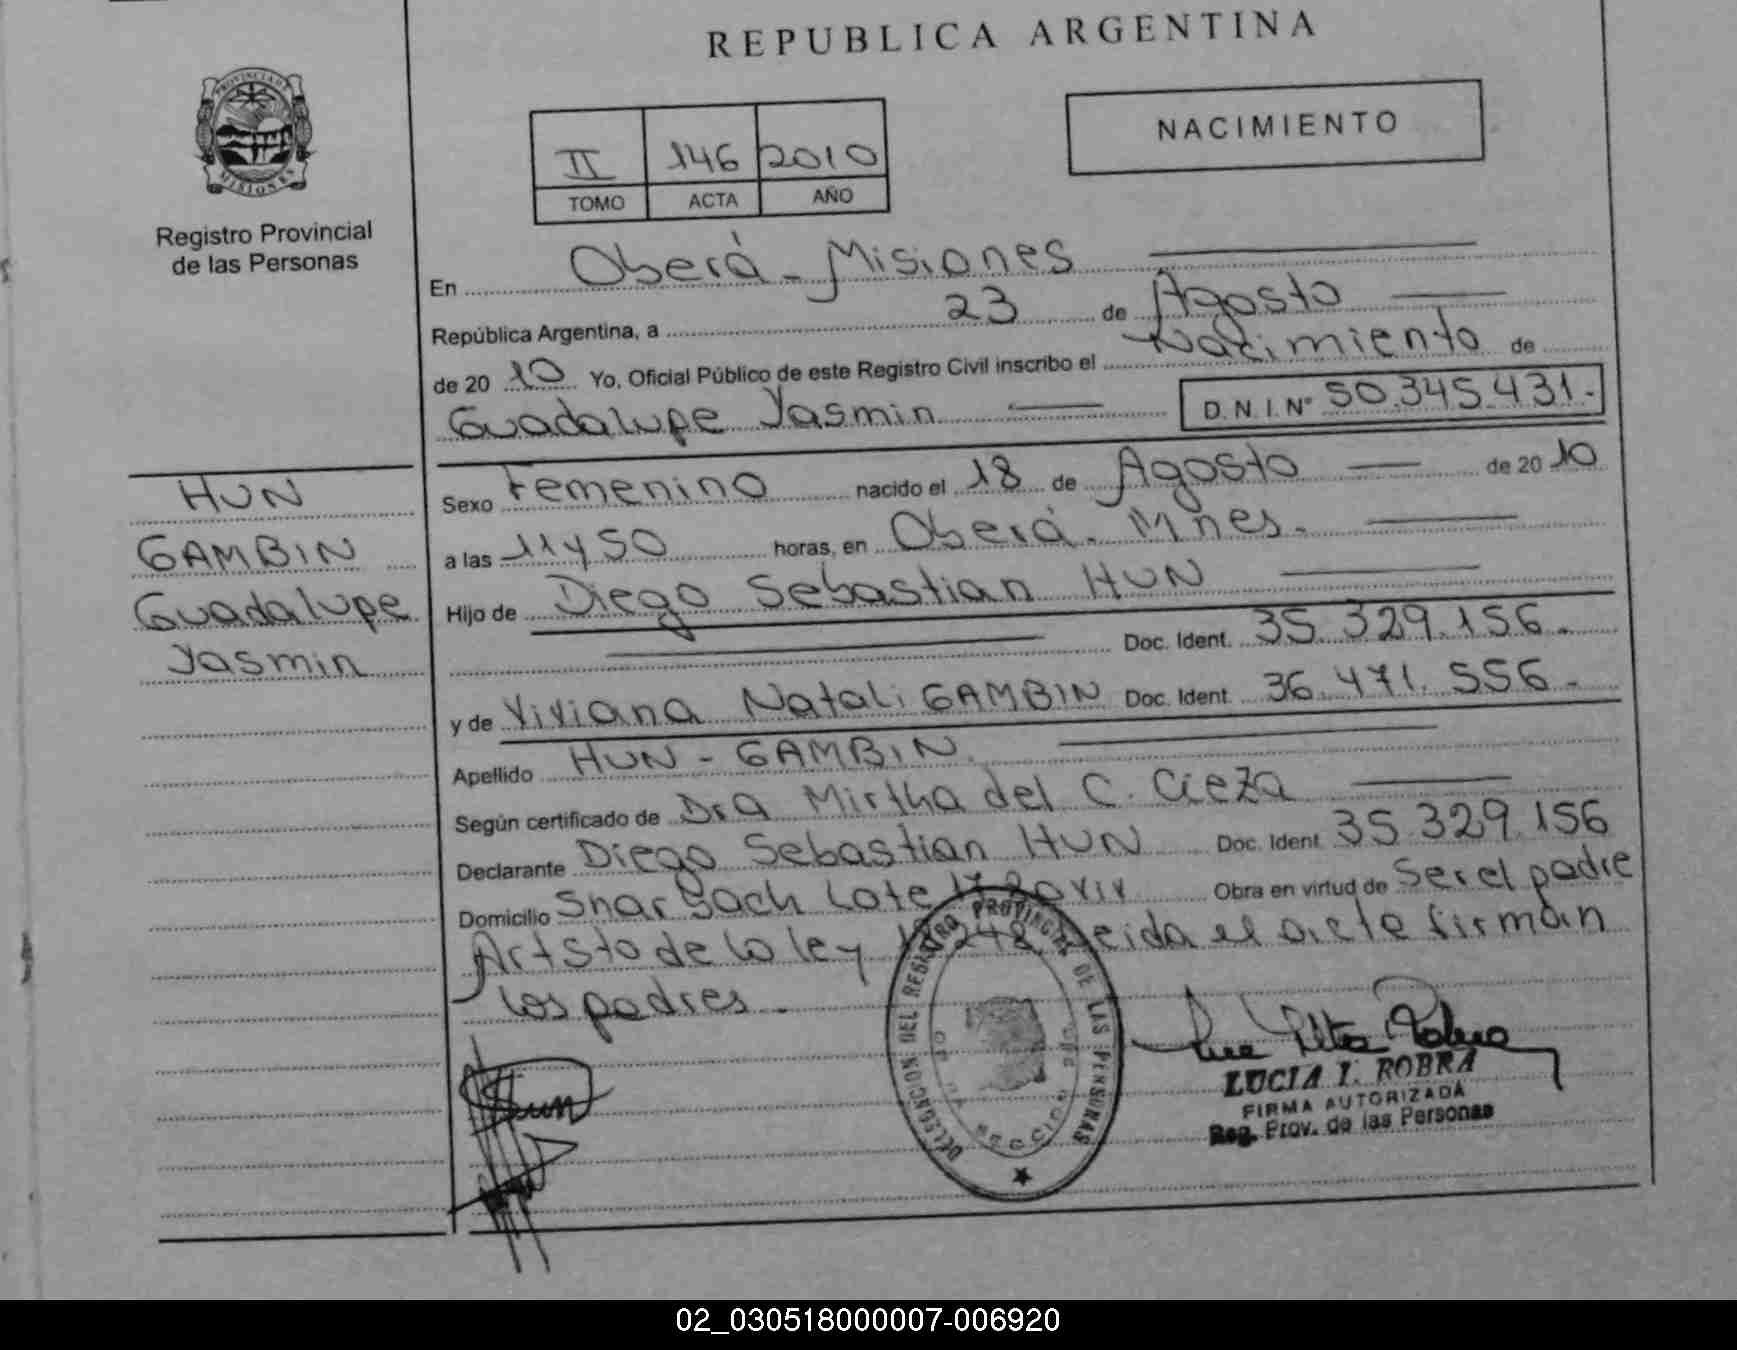 REPUBLICA ARGENTINA
PROVINCIA DE
MISIONES
Registro Provincial
de las Personas
NACIMIENTO
II 146 2010
TOMO ACTA AÑO
En Oberá - Misiones
República Argentina, a 23 de Agosto
de 20 10 Yo, Oficial Público de este Registro Civil inscribo el Nacimiento de
Guadalupe Yasmin D.N.I. Nº 50.345.431.-
HUN
GAMBIN
Guadalupe
Yasmin
Sexo Femenino nacido el 18 de Agosto de 20 10
a las 11 y 50 horas, en Oberá. Mnes.
Hijo de Diego Sebastian HUN
Doc. Ident. 35.329.156.
y de Viviana Natali GAMBIN Doc. Ident. 36.471.556.-
Apellido HUN - GAMBIN
Según certificado de Dra Mirtha del C. Cieza
Declarante Diego Sebastian HUN Doc. Ident 35.329.156
Domicilio Lote Obra en virtud de Ser el padre
de la ley el acta firman
los padres.
DELEGACION DEL REGISTRO PROVINCIAL DE LAS PERSONAS
LUCIA I. ROBRA
FIRMA AUTORIZADA
Reg. Prov. de las Personas
02_030518000007-006920